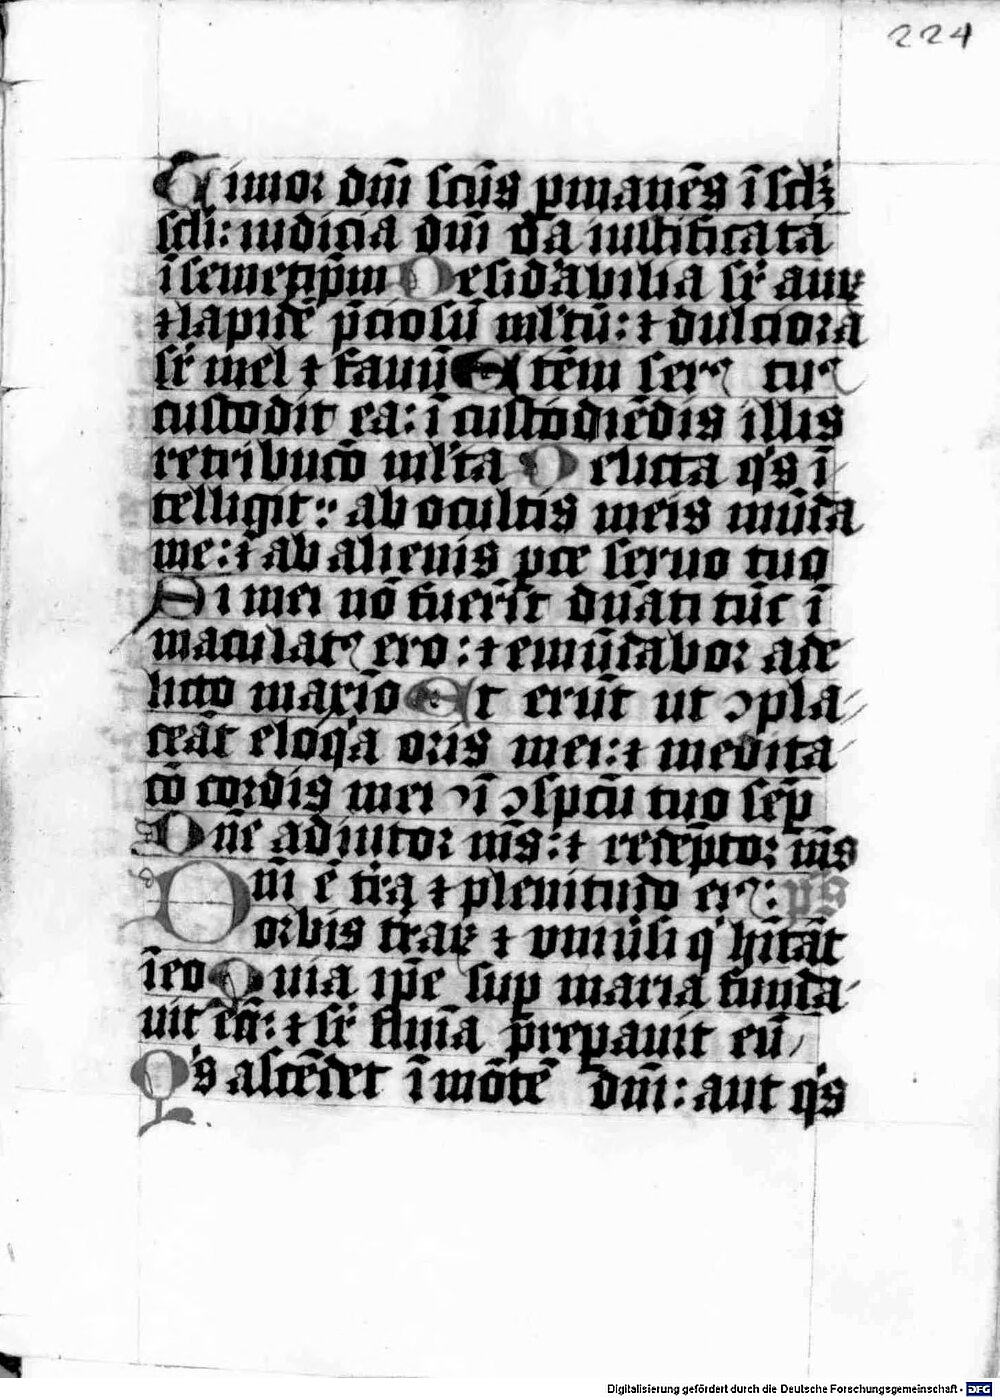 224
Timor dn̄i sc̄us ꝑmanēs ī scl̄ꝫ
scl̄i: iudicia dn̄i ũa iustificata
ī semetip̄m Desid̓abilia sr̄ auꝝ
⁊ lapidē p̄ciosū ml̓tū: ⁊ dulciora
sr̄ mel ⁊ fauū Etēm seruꝰ tuꝰ
custodit ea: ī custodiēdis illis
retribucō ml̓ta Delicta qͥs ī
telligit: ab ocultis meis mūda
me: ⁊ ab alienis ꝑce seruo tuo
Si mei nō fuerīt dn̄ati tūc ī
maculatꝰ ero: ⁊ emūdabor a de
licto maxīo Et erūt ut ꝯpla
ceāt eloqͥa oris mei: ⁊ medita
cō cordis mei ī ꝯspc̄tu tuo sēp
Dn̄e adiutor m̄s: ⁊ redēptor m̄s
Dn̄i ē t̓ra ⁊ plenitudo eiꝰ: p̄s
orbis t̓raꝝ ⁊ vniūsi qͥ hītāt
ī eo Quia ip̄e suꝑ maria funda
uit eū: ⁊ sr̄ flumīa p̄ꝑauit eū
Qͥs ascēdet ī mōtē dn̄i: aut qͥs
Digitalisierung gefördert durch die Deutsche Forschungsgemeinschaft - DFG